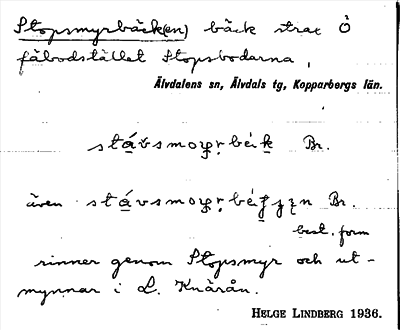 Stopsmyrbäck(en) bäck strax Ö
fäbodstället Stopsbodarna,
Älvdalens sn, Älvdals tg, Kopparbergs län.
Br.
även Br.
best. form
rinner genom Stopsmyr och ut-
mynnar i L. Knärån.
HELGE LINDBERG 1936.